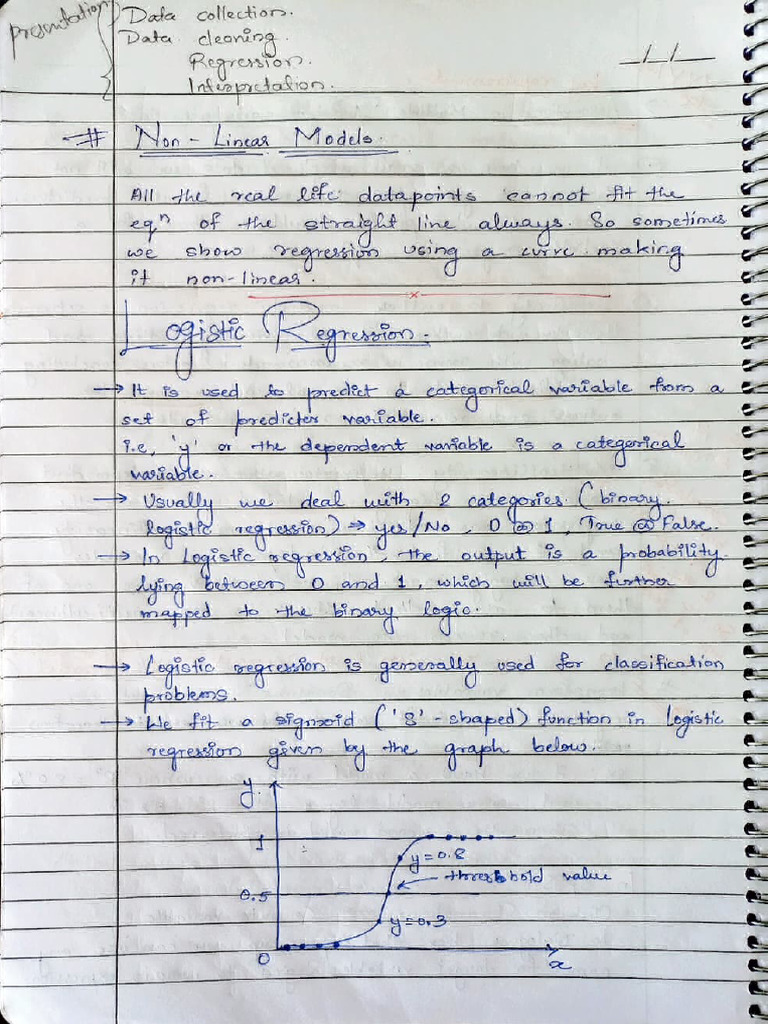 presentation
Data collection.
Data cleaning.
Regression.
Interpretation.
__/__/__
# Non - Linear Models.
All the real life datapoints cannot fit the
eqⁿ of the straight line always. So sometimes
we show regression using a curve making
it non-linear.
x
Logistic Regression.
→ It is used to predict a categorical variable from a
set of predictor variable.
i.e, 'y' or the dependent variable is a categorical
variable.
→ Usually we deal with 2 categories (binary
logistic regression) → yes/No, 0 or 1, True or False.
→ In Logistic regression, the output is a probability
lying between 0 and 1 which will be further
mapped to the binary logic.
→ Logistic regression is generally used for classification
problems.
→ We fit a sigmoid ('S'-shaped) function in logistic
regression given by the graph below.
y.
1
y=0.8
← threshold value
0.5
y=0.3
0
x